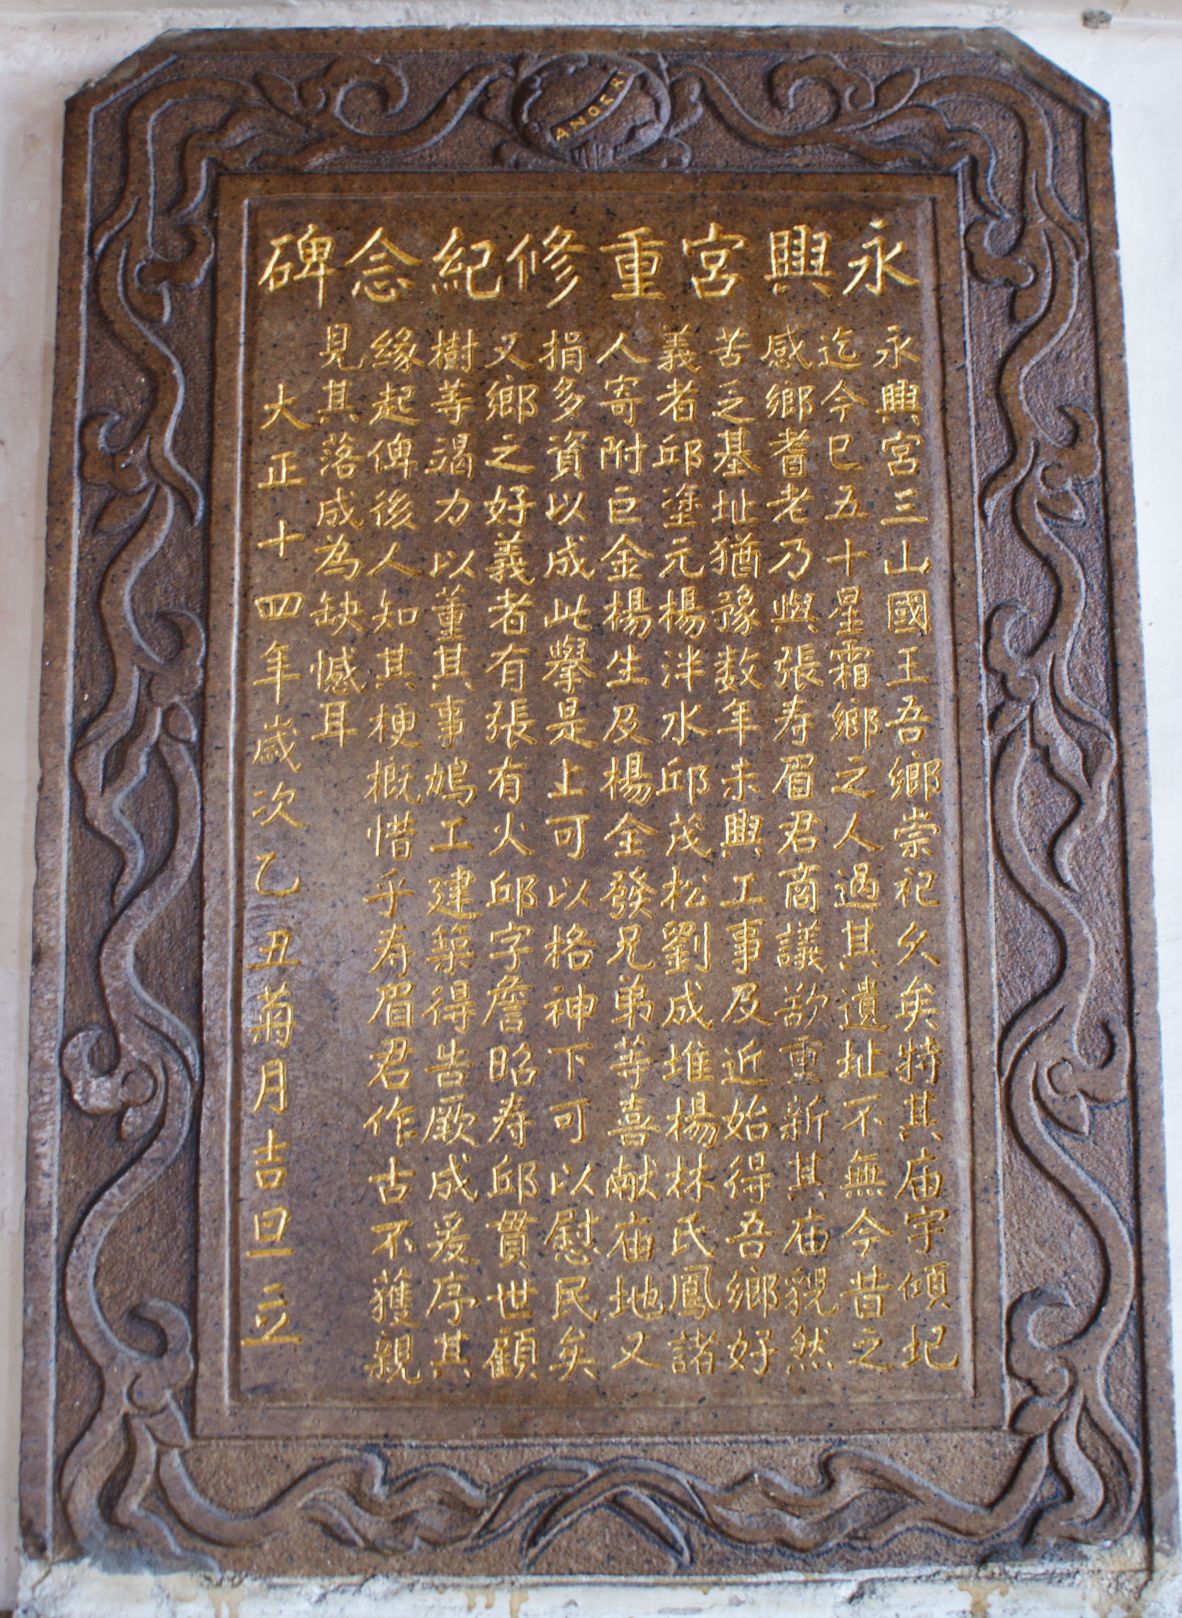 ANGER
永興宮重修紀念碑
永興宮三山國王吾鄉崇祀久矣特其庙宇傾圮
迄今已五十星霜鄉之人過其遺址不無今昔之
感鄉耆老乃與張寿眉君商議欲重新其庙貌然
苦乏基址猶豫数年未興工事及近始得吾鄉好
義者邱塗元楊泮水邱茂松劉成堆楊林氏鳳諸
人寄附巨金楊生及楊全發兄弟等喜献庙地又
捐多資以成此擧是上可以格神下可以慰民矣
又鄉之好義者有張有火邱字詹昭寿邱貫世顧
樹等竭力以董其事鳩工建築得告厥成爰序其
緣起俾後人知其梗概惜乎寿眉君作古不獲親
見其落成為缺憾耳
大正十四年歲次乙丑菊月吉旦立